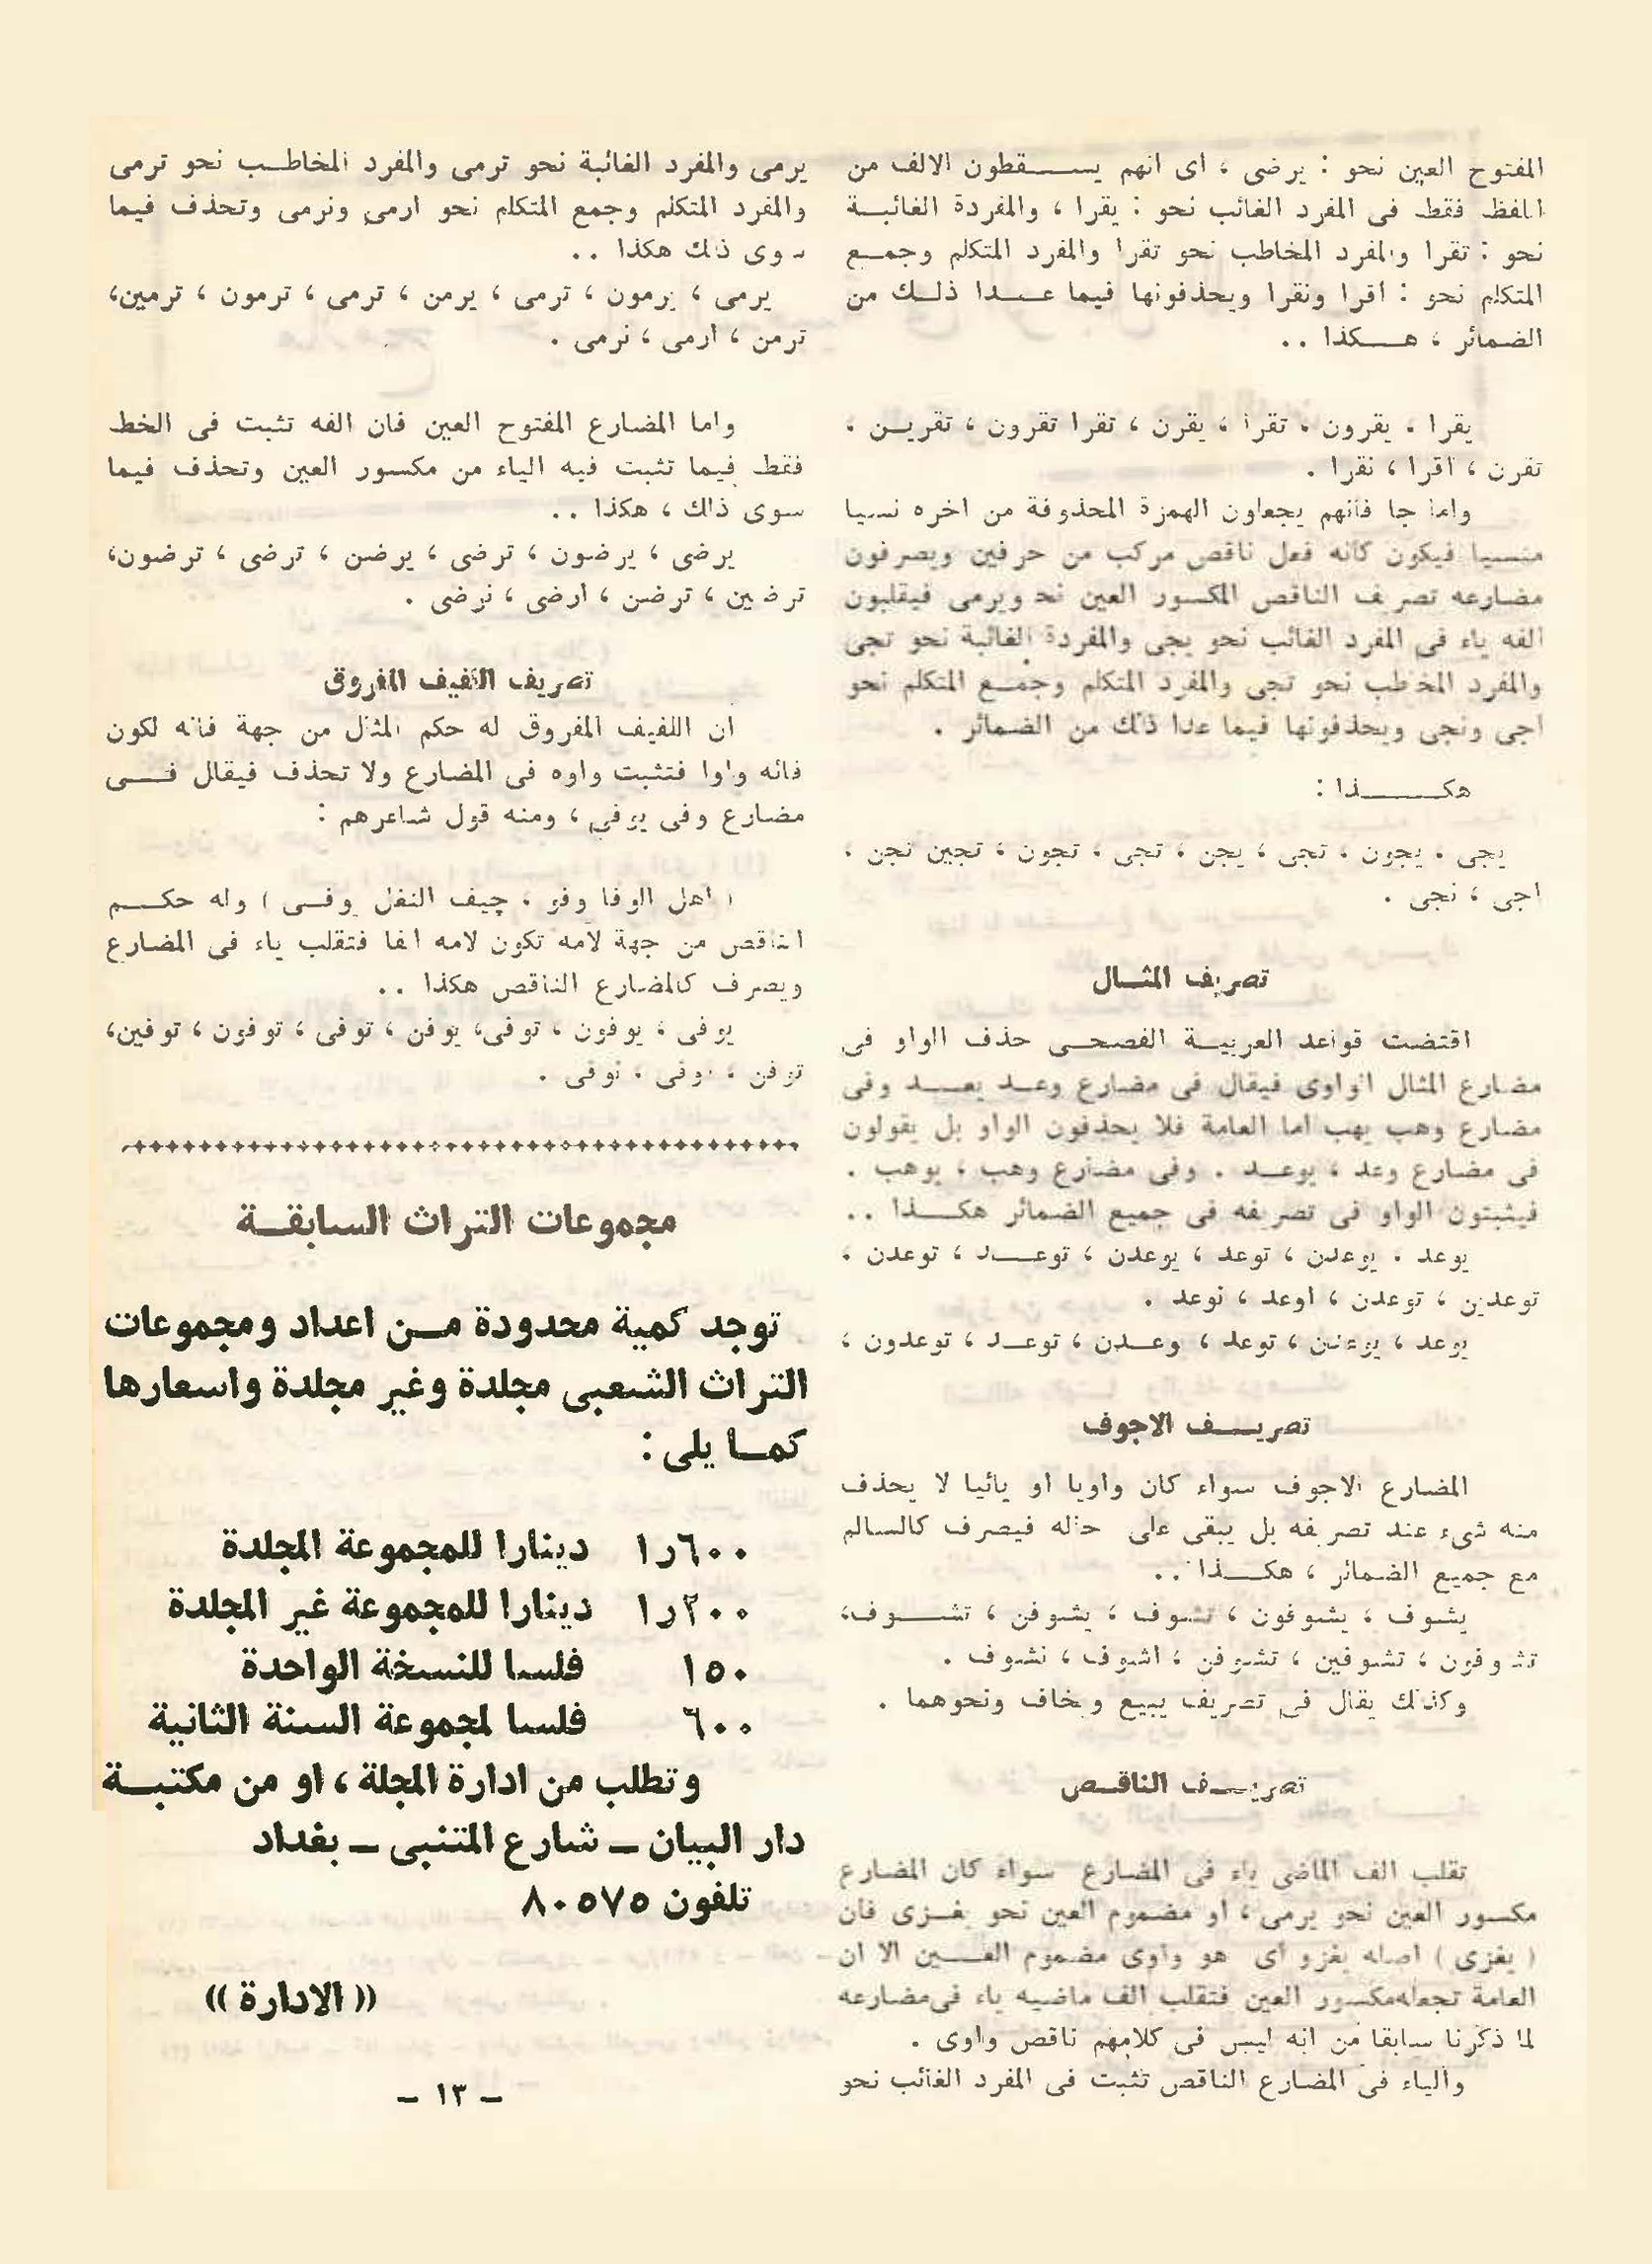 المفتوح العين نحو : يرضى ، اى انهم يسقطون الالف من
اللفظ فقط فى المفرد الغائب نحو : يقرا ، والمفردة الغائبة
نحو : تقرا والمفرد المخاطب نحو تقرا والمفرد المتكلم وجمع
المتكلم نحو : اقرا ونقرا ويحذفونها فيما عدا ذلك من
الضمائر ، هكذا ..
يقرا ، يقرون ، تقرا ، يقرن ، تقرا تقرون ، تقرين ،
تقرن ، اقرا ، نقرا .
واما جا فانهم يجعلون الهمزة المحذوفة من اخره نسيا
منسيا فيكون كانه فعل ناقص مركب من حرفين ويصرفون
مضارعه تصريف الناقص المكسور العين نحو يرمى فيقلبون
الفه ياء فى المفرد الغائب نحو يجى والمفردة الغائبة نحو تجى
والمفرد المخاطب نحو تجى والمفرد المتكلم وجمع المتكلم نحو
اجى ونجى ويحذفونها فيما عدا ذلك من الضمائر .
هكذا :
يجى ، يجون ، تجى ، يجن ، تجى ، تجون ، تجين تجن ،
اجى ، نجى .
تصريف المثال
اقتضت قواعد العربية الفصحى حذف الواو فى
مضارع المثال الواوى فيقال فى مضارع وعد يعد وفى
مضارع وهب يهب اما العامة فلا يحذفون الواو بل يقولون
فى مضارع وعد ، يوعد . وفى مضارع وهب ، يوهب .
فيثبتون الواو فى تصريفه فى جميع الضمائر هكذا ..
يوعد ، يوعدن ، توعد ، يوعدن ، توعد ، توعدن ،
توعدين ، توعدن ، اوعد ، نوعد .
يوعد ، يوعدن ، توعد ، وعدن ، توعد ، توعدون ،
تصريف الاجوف
المضارع الاجوف سواء كان واويا او يائيا لا يحذف
منه شىء عند تصريفه بل يبقى على حاله فيصرف كالسالم
مع جميع الضمائر ، هكذا ..
يشوف ، يشوفون ، تشوف ، يشوفن ، تشوف،
تشوفون ، تشوفين ، تشوفن ، اشوف ، نشوف .
وكذلك يقال فى تصريف يبيع ويخاف ونحوهما .
تصريف الناقص
تقلب الف الماضى ياء فى المضارع سواء كان المضارع
مكسور العين نحو يرمى ، او مضموم العين نحو يغزى فان
( يغزى ) اصله يغزو اى هو واوى مضموم العين الا ان
العامة تجعله مكسور العين فتقلب الف ماضيه ياء فى مضارعه
لما ذكرنا سابقا من انه ليس فى كلامهم ناقص واوى .
والياء فى المضارع الناقص تثبت فى المفرد الغائب نحو
يرمى والمفرد الغائبة نحو ترمى والمفرد المخاطب نحو ترمى
والمفرد المتكلم وجمع المتكلم نحو ارمى ونرمى وتحذف فيما
سوى ذلك هكذا ..
يرمى ، يرمون ، ترمى ، يرمن ، ترمى ، ترمون ، ترمين،
ترمن ، ارمى ، نرمى .
واما المضارع المفتوح العين فان الفه تثبت فى الخط
فقط فيما تثبت فيه الياء من مكسور العين وتحذف فيما
سوى ذلك ، هكذا ..
يرضى ، يرضون ، ترضى ، يرضن ، ترضى ، ترضون،
ترضين ، ترضن ، ارضى ، نرضى .
تصريف اللفيف المفروق
ان اللفيف المفروق له حكم المثال من جهة فائه لكون
فائه واوا فتثبت واوه فى المضارع ولا تحذف فيقال فى
مضارع وفى يوفى ، ومنه قول شاعرهم :
( اهل الوفا وفو ، چيف النفل يوفى ) وله حكم
الناقص من جهة لامه تكون لامه الفا فتقلب ياء فى المضارع
ويصرف كالمضارع الناقص هكذا ..
يوفى ، يوفون ، توفى، يوفن ، توفى ، توفون ، توفين،
توفن ، اوفى ، نوفى .
مجموعات التراث السابقة
توجد كمية محدودة من اعداد ومجموعات
التراث الشعبى مجلدة وغير مجلدة واسعارها
كما يلى :
١ر٦٠٠ دينارا للمجموعة المجلدة
١ر٢٠٠ دينارا للمجموعة غير المجلدة
١٥٠ فلسا للنسخة الواحدة
٦٠٠ فلسا لمجموعة السنة الثانية
وتطلب من ادارة المجلة ، او من مكتبة
دار البيان – شارع المتنبى – بغداد
تلفون ٨٠٥٧٥
(( الادارة ))
– ١٣ –